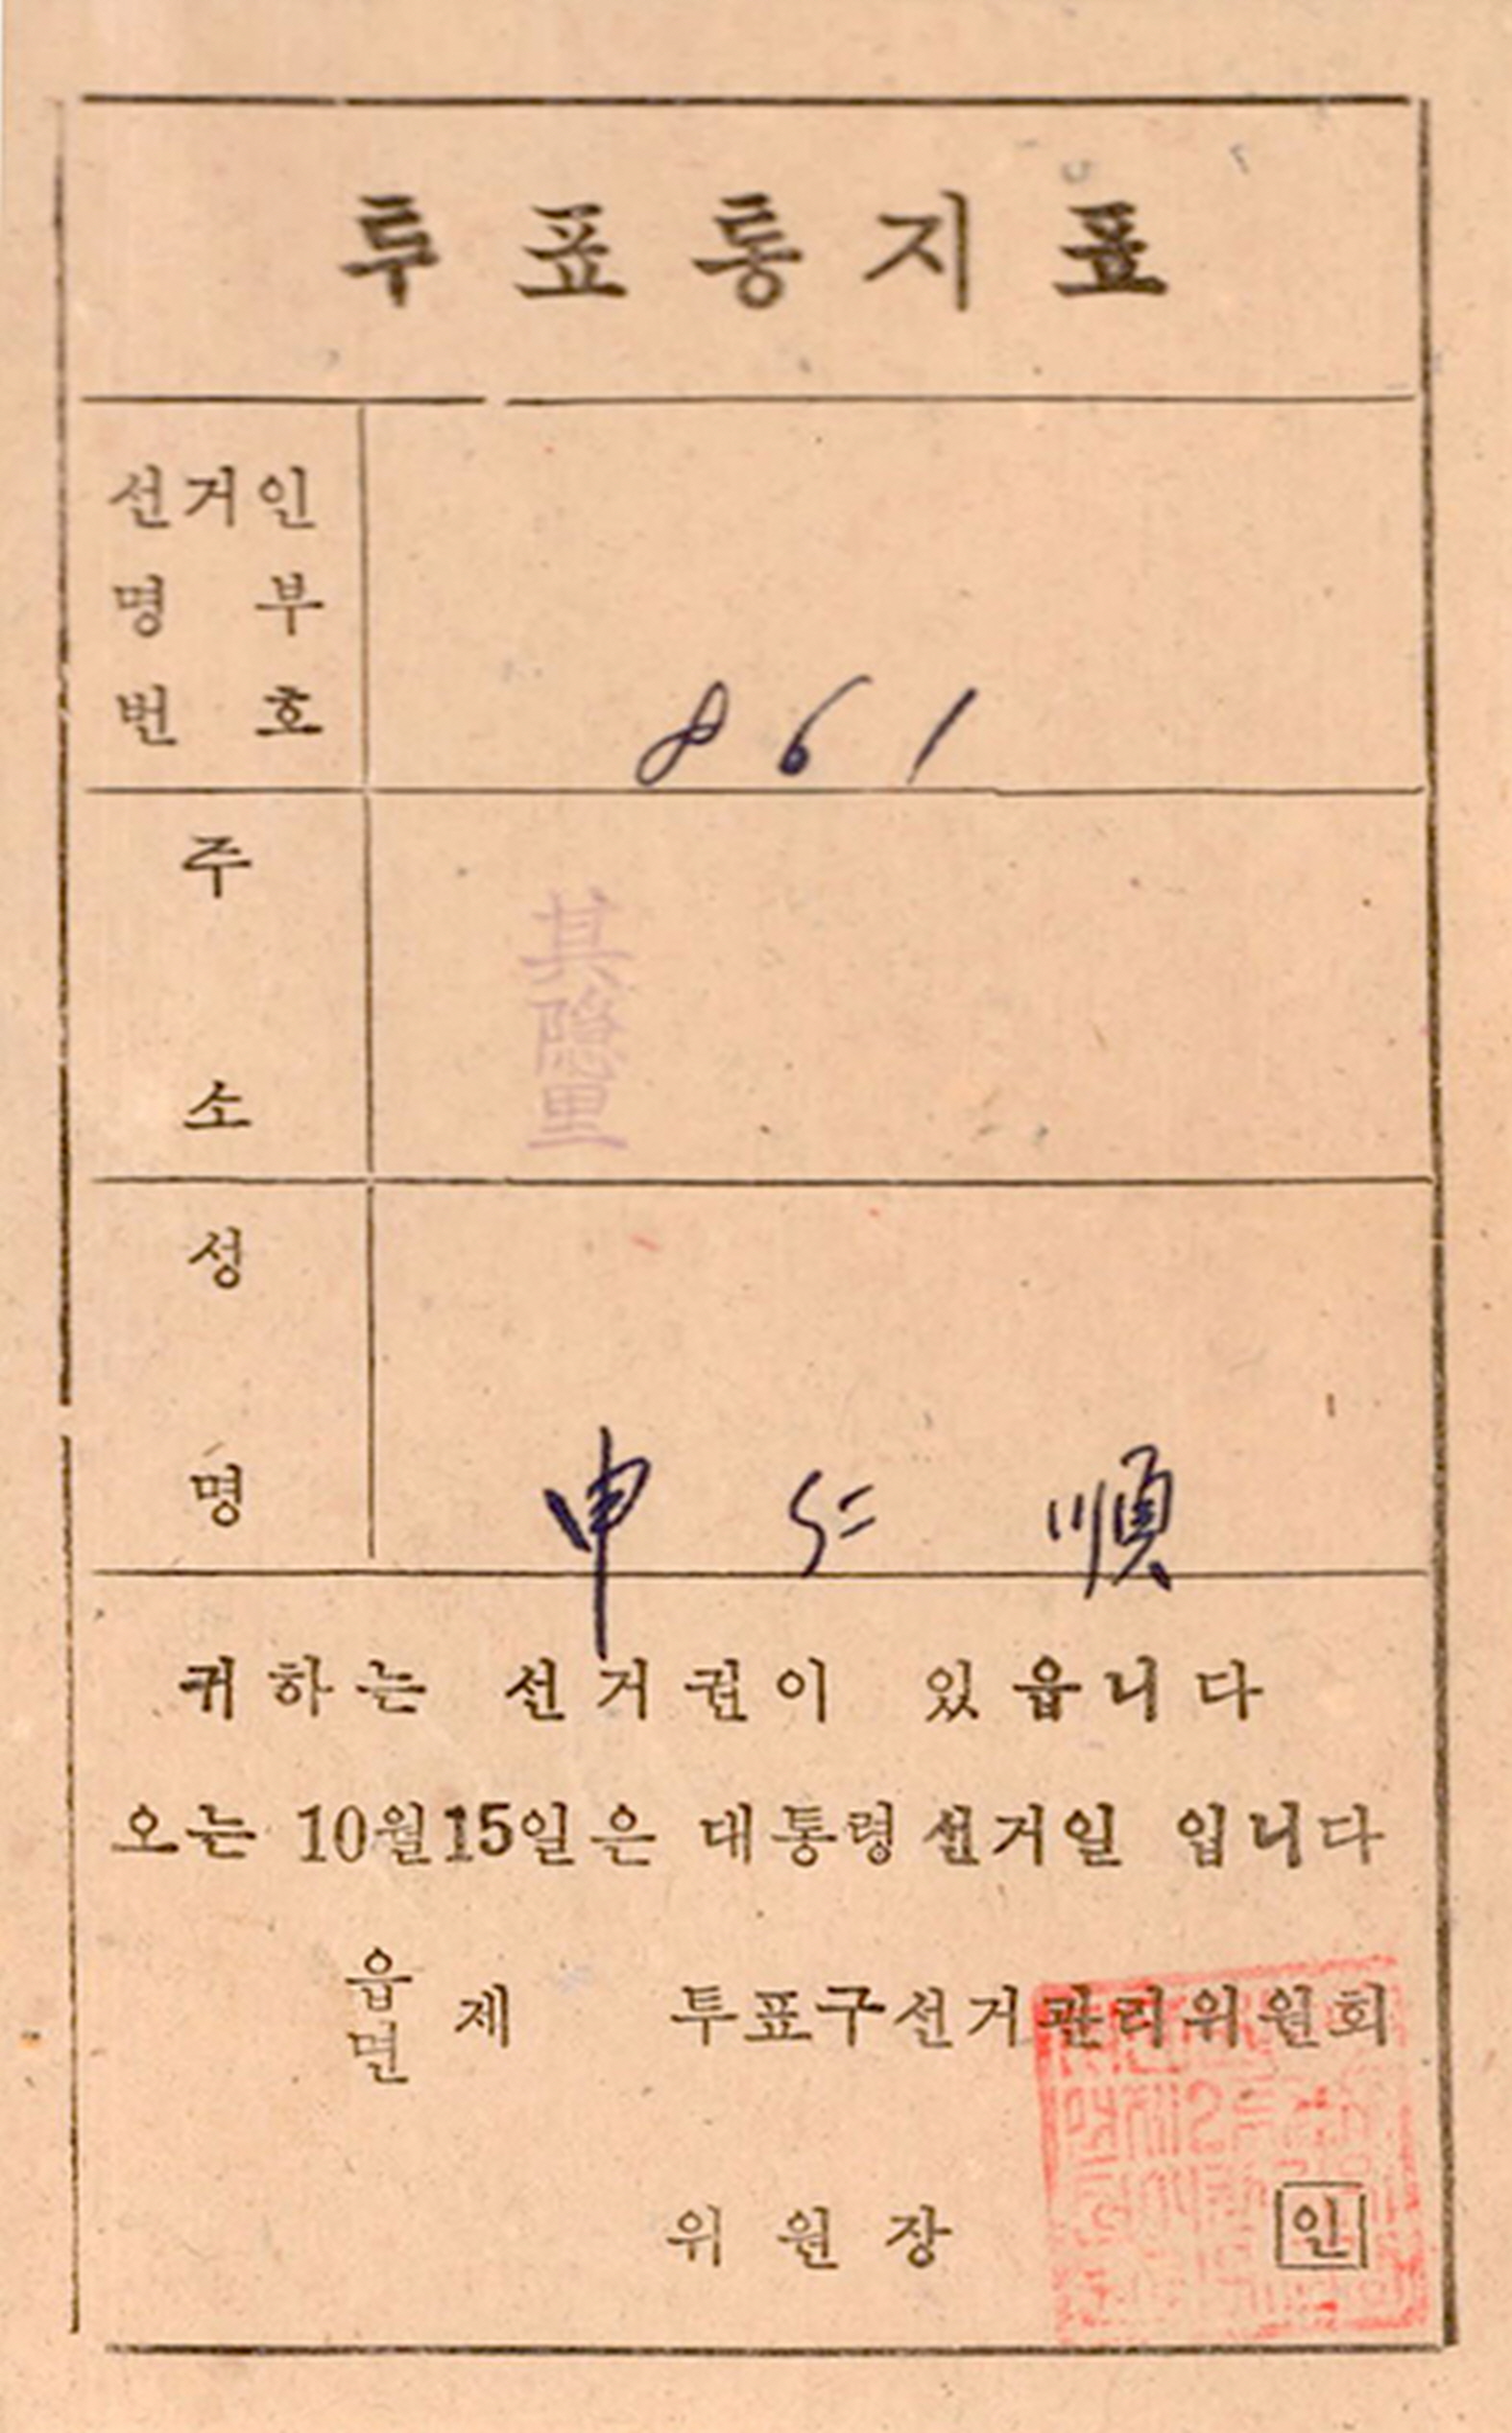 투표통지표
선거인
명부
번호
861
주소
其隱里
성명
申仁順
귀하는 선거권이 있읍니다
오는 10월15일은 대통령선거일 입니다
읍
면
제 투표구선거관리위원회
위원장 인